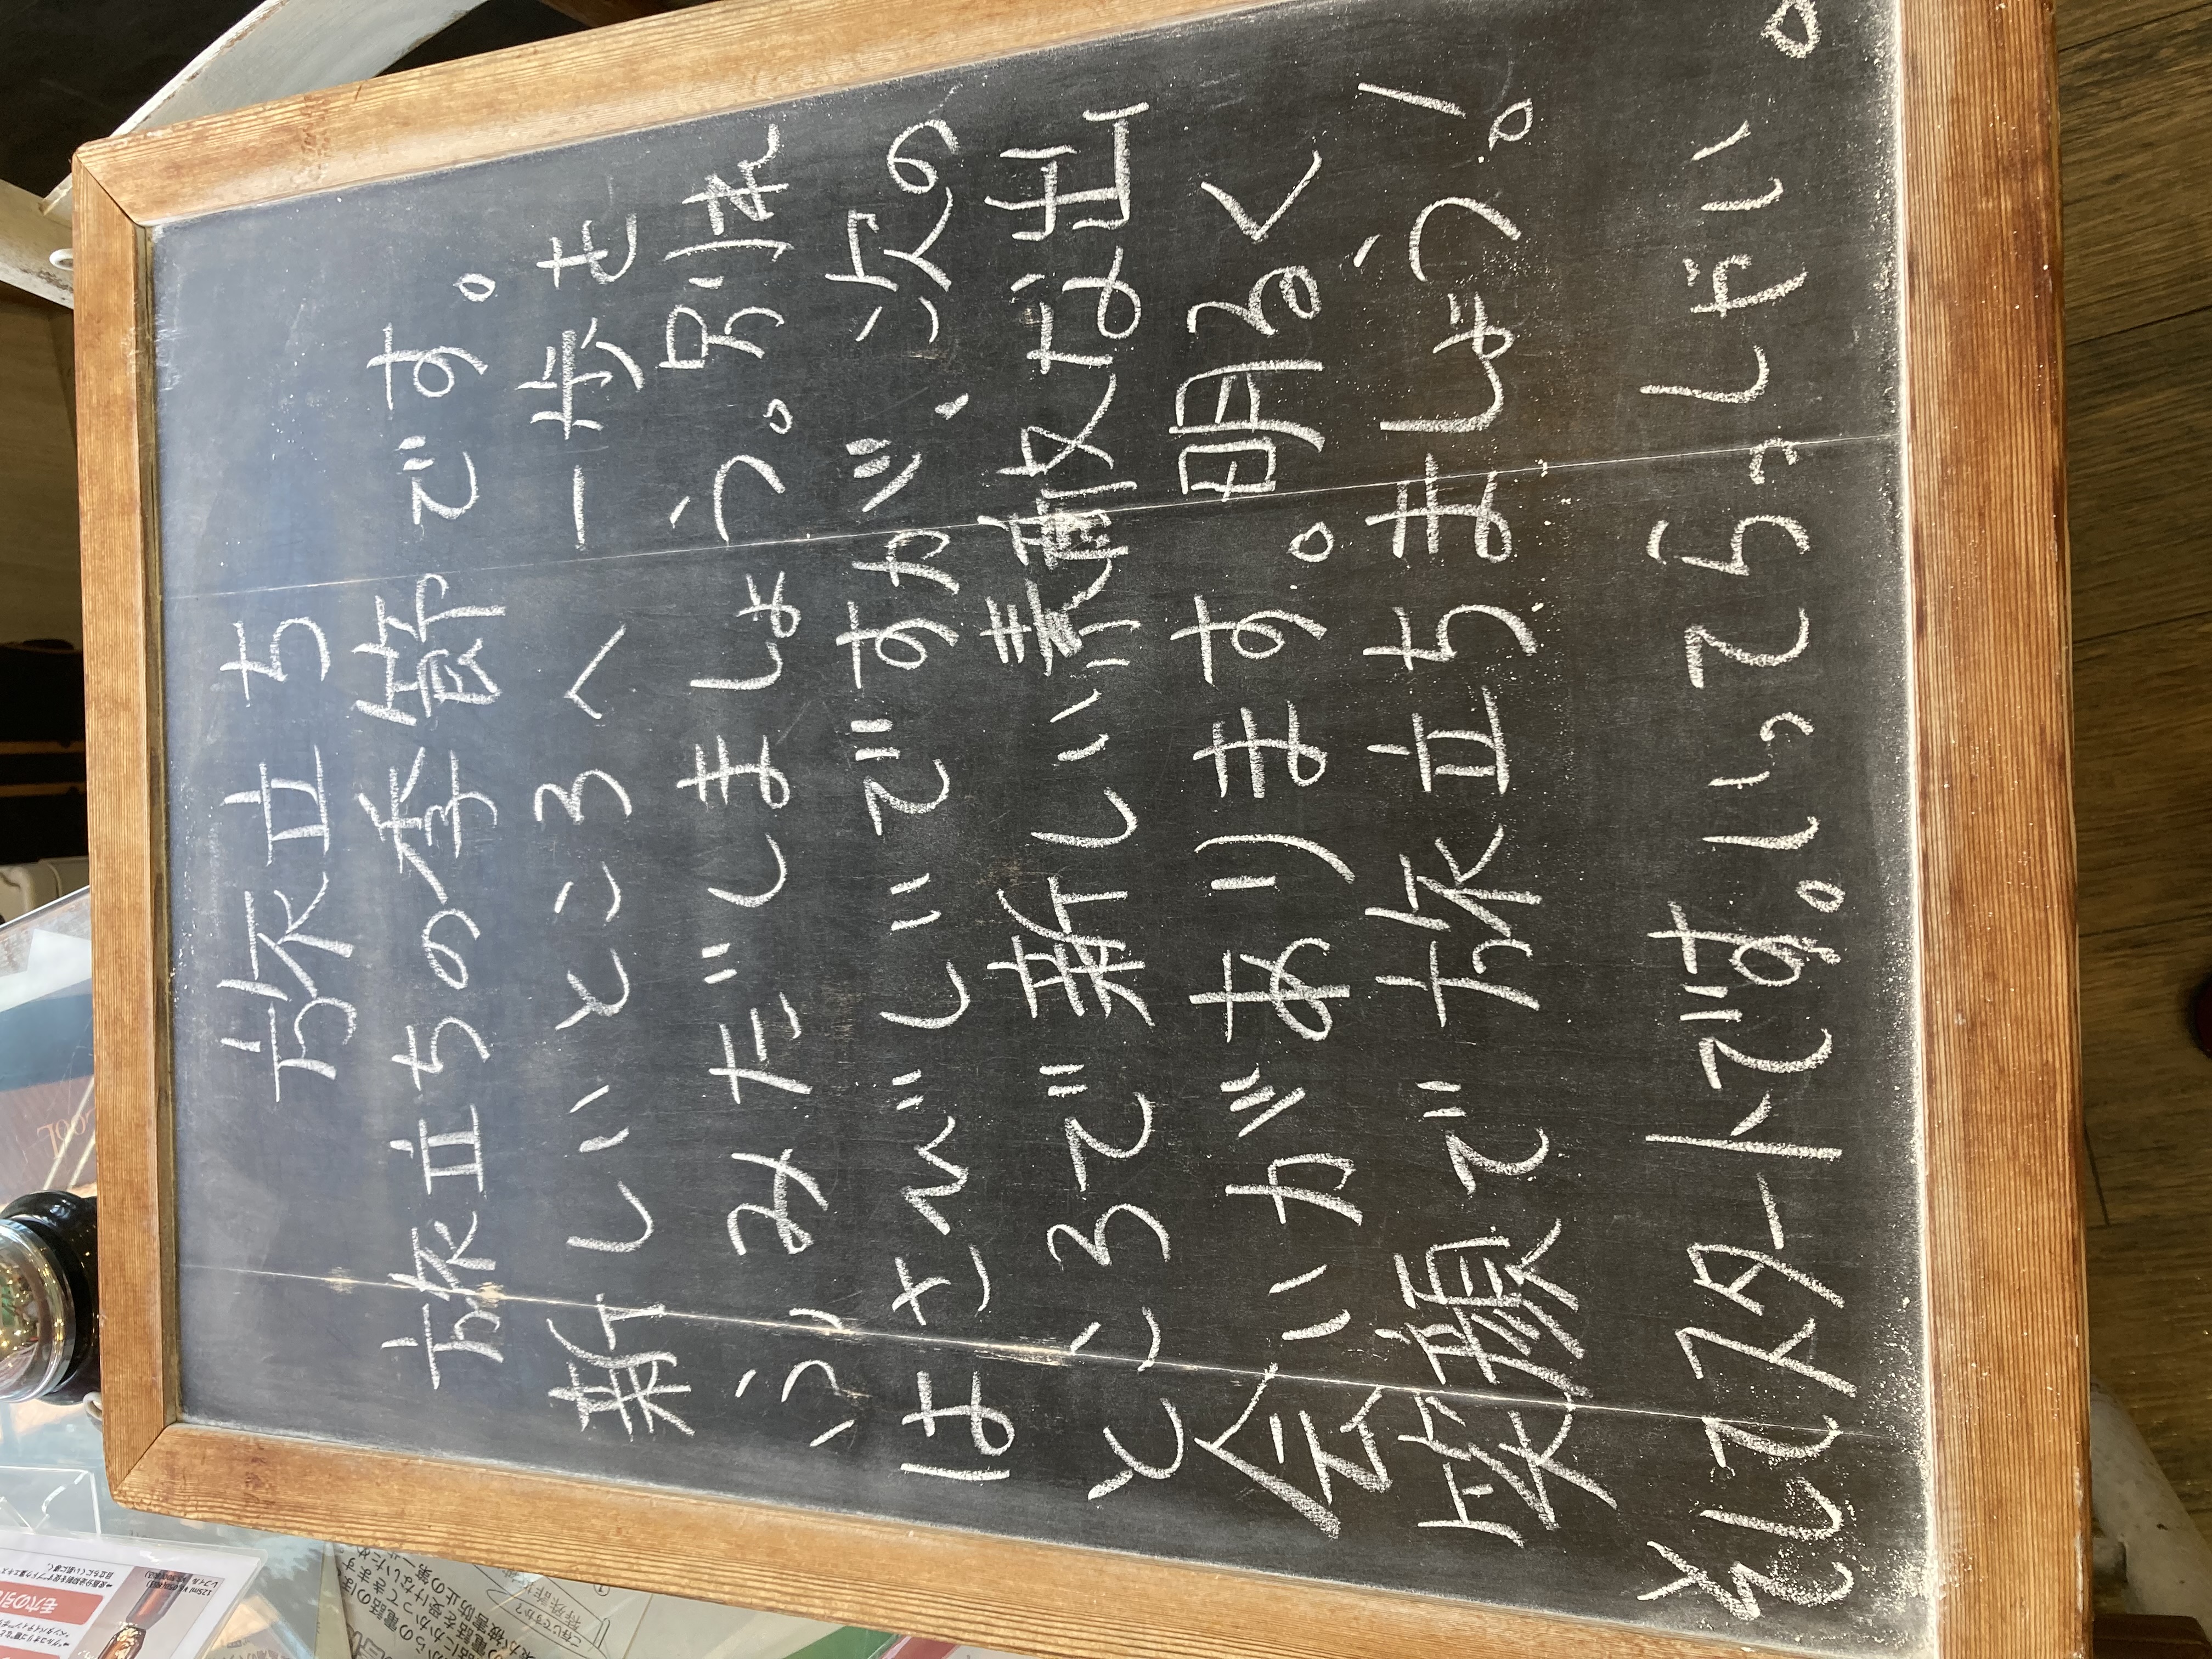 旅立ち
旅立ちの季節です。
新しいところへ 一歩を
ふみだしましょう。別れ
はさびしいですが、次の
ところで新しい素敵な出
会いがあります。明るく
笑顔で旅立ちましょう！
そしてスタートです。いってらっしゃい。
毛穴の引
ご存じですか?